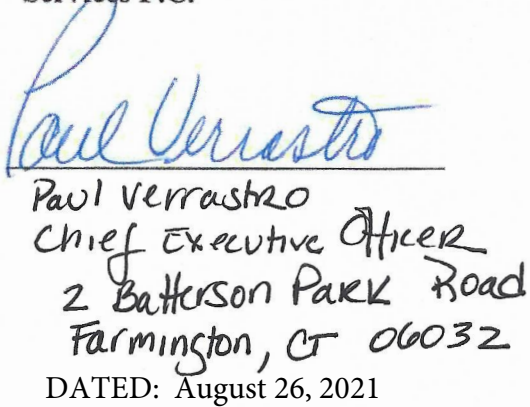 Services P.C.
Paul Verrastro
Paul Verrastro
Chief Executive Officer
2 Batterson Park Road
Farmington, CT 06032
DATED: August 26, 2021